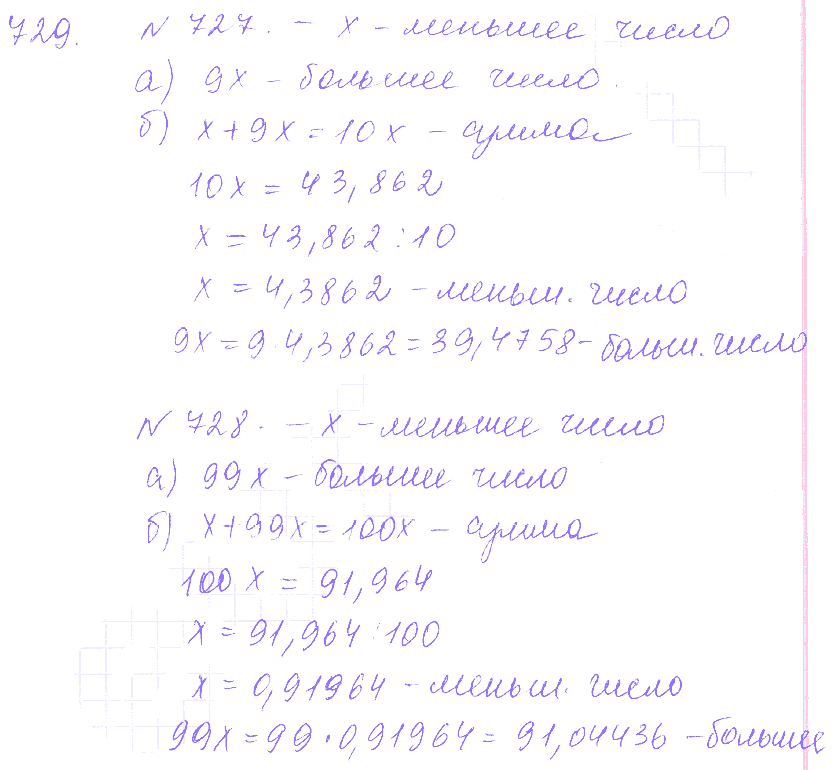 729. № 727. – x – меньшее число
а) 9x – большее число.
б) x + 9x = 10x – сумма
10x = 43,862
x = 43,862 : 10
x = 4,3862 – меньш. число
9x = 9 · 4,3862 = 39,4758 – больш. число
№ 728. – x – меньшее число
а) 99x – большее число
б) x + 99x = 100x – сумма
100x = 91,964
x = 91,964 : 100
x = 0,91964 – меньш. число
99x = 99 · 0,91964 = 91,04436 – большее